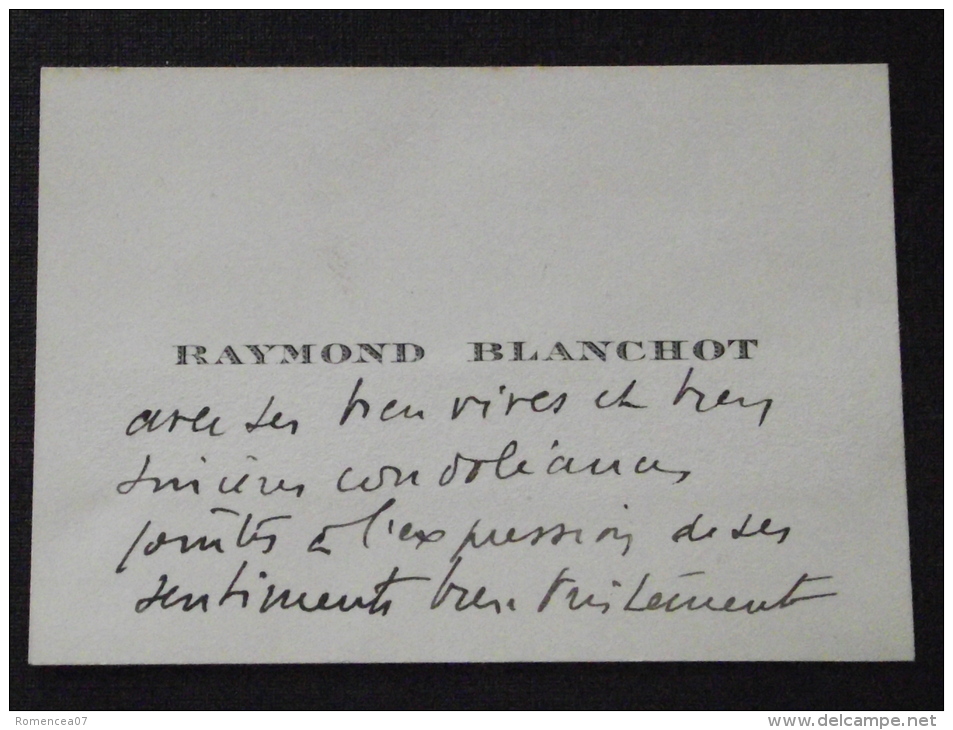 RAYMOND BLANCHOT
avec ses bien vives et bien
sincères condoléances
jointes à l'expression de ses
sentiments bien tristement
Romencea07
www.delcampe.net